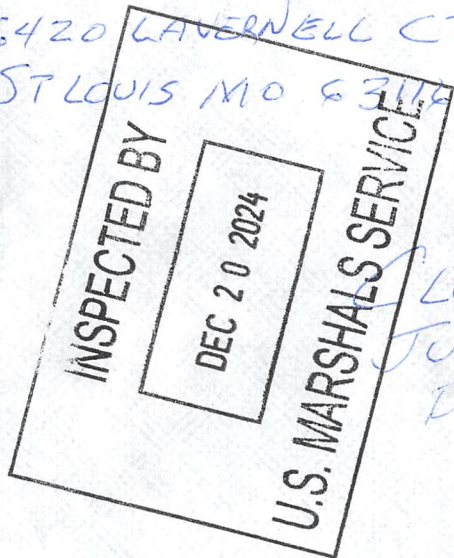 5420 LAVERNELL CT
ST LOUIS MO 63116
INSPECTED BY
DEC 20 2024
U.S. MARSHALS SERVICE